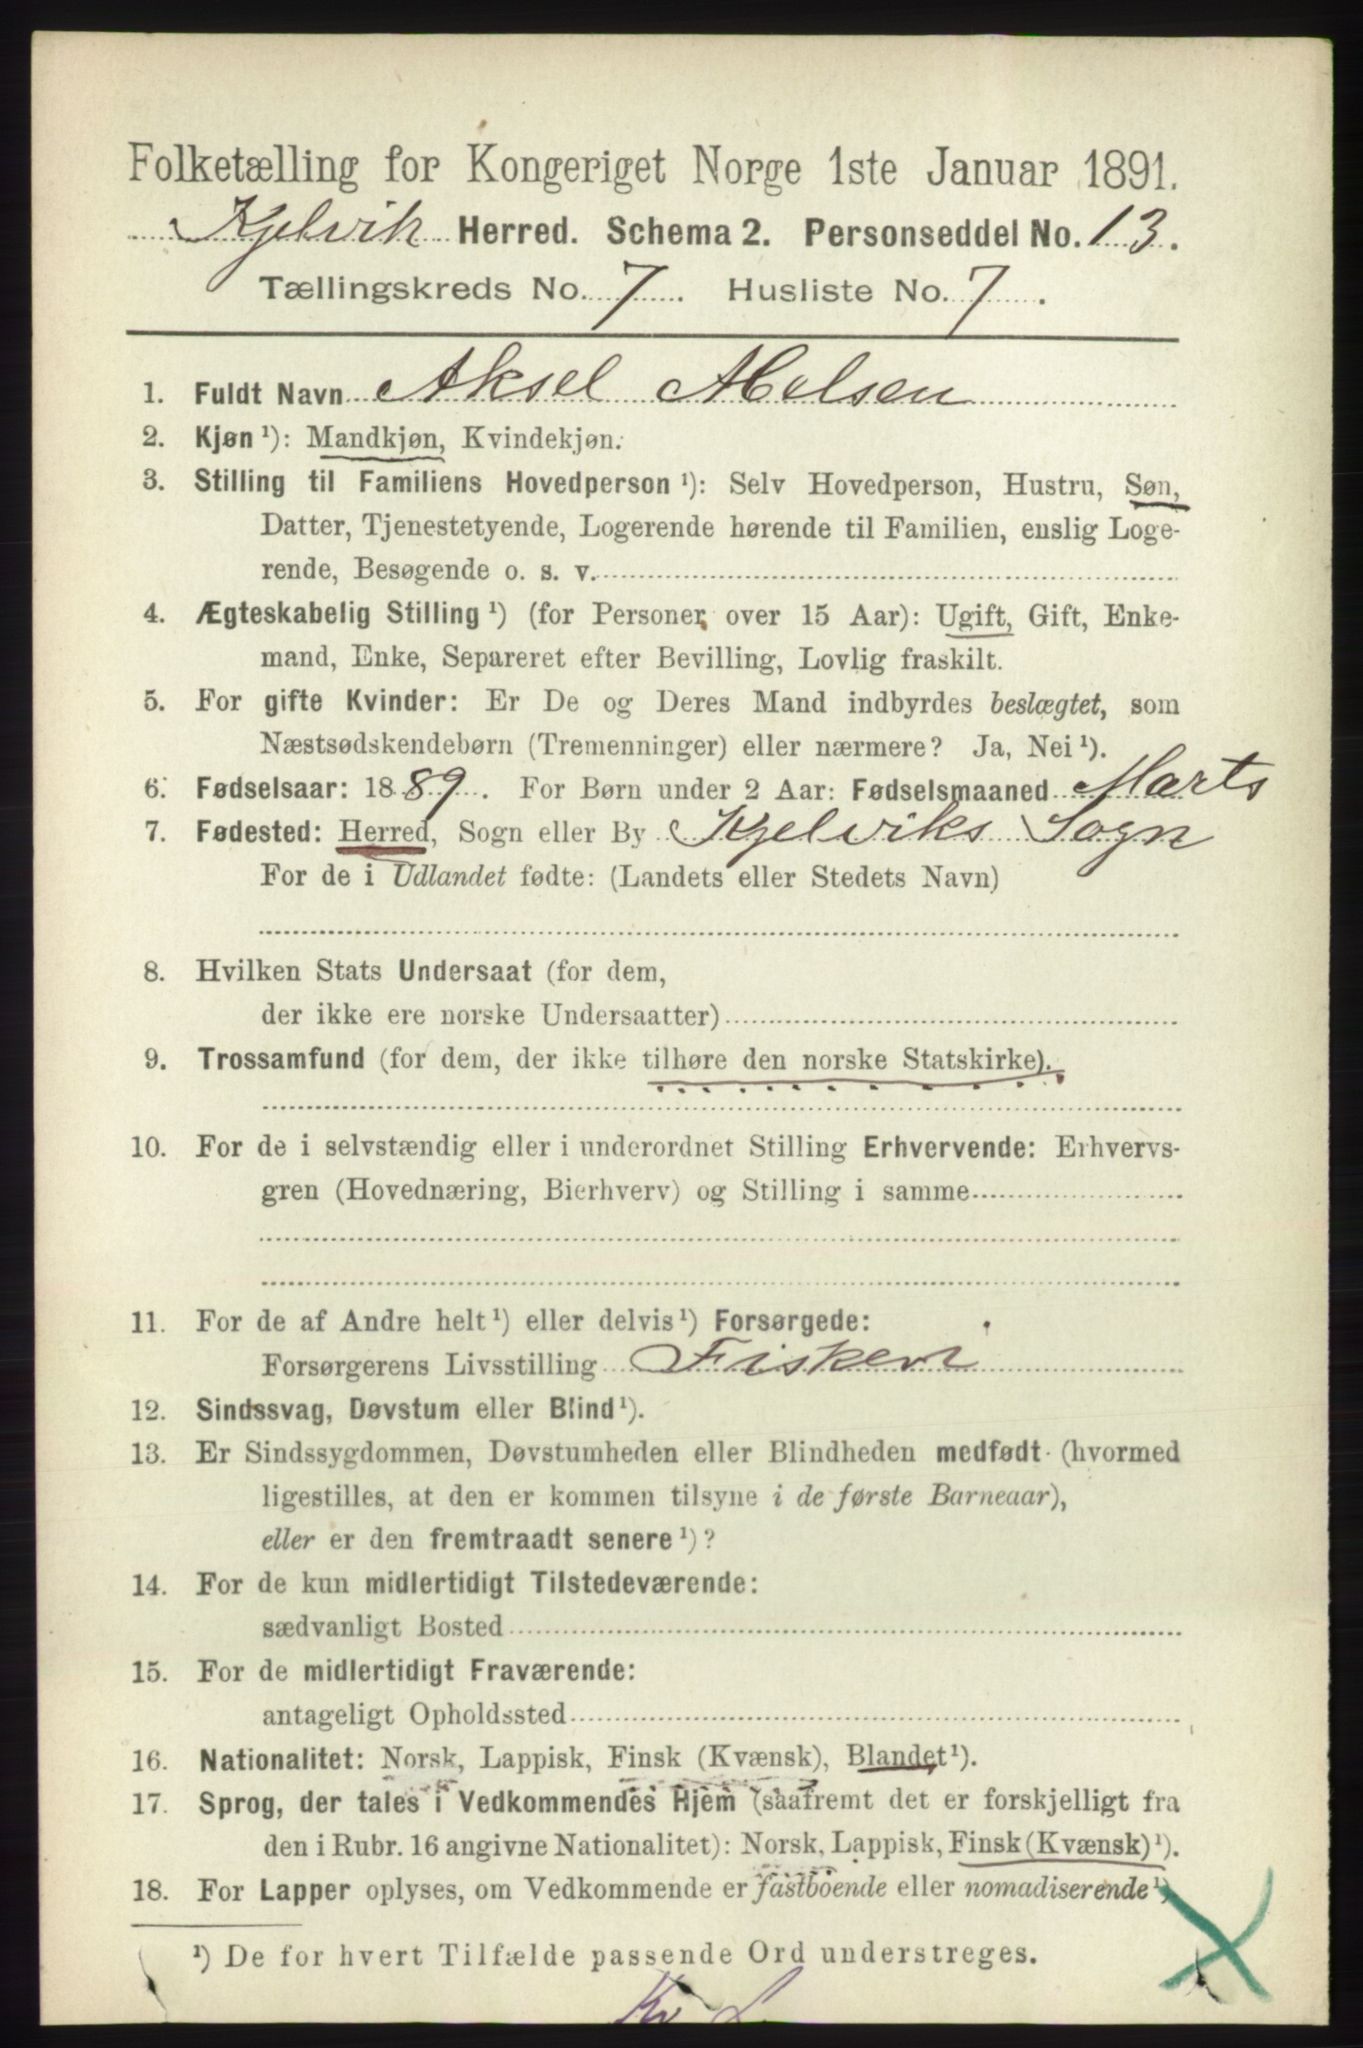 Folketælling for Kongeriget Norge 1ste Januar 1891.
Kjelvik Herred. Schema 2. Personseddel No. 13.
Tællingskreds No. 7. Husliste No. 7.
1. Fuldt Navn Aksel
2. Kjøn ¹): Mandkjøn, Kvindekjøn.
3. Stilling til Familiens Hovedperson ¹): Selv Hovedperson, Hustru, Søn,
Datter, Tjenestetyende, Logerende hørende til Familien, enslig Loge-
rende, Besøgende o. s. v.
4. Ægteskabelig Stilling ¹) (for Personer over 15 Aar): Ugift, Gift, Enke-
mand, Enke, Separeret efter Bevilling, Lovlig fraskilt.
5. For gifte Kvinder: Er De og Deres Mand indbyrdes beslægtet, som
Næstsødskendebørn (Tremenninger) eller nærmere? Ja, Nei ¹).
6. Fødselsaar: 1889. For Børn under 2 Aar: Fødselsmaaned Marts
7. Fødested: Herred, Sogn eller By Kjelviks Sogn
For de i Udlandet fødte: (Landets eller Stedets Navn)
8. Hvilken Stats Undersaat (for dem,
der ikke ere norske Undersaatter)
9. Trossamfund (for dem, der ikke tilhøre den norske Statskirke).
10. For de i selvstændig eller i underordnet Stilling Erhvervende: Erhvervs-
gren (Hovednæring, Bierhverv) og Stilling i samme
11. For de af Andre helt ¹) eller delvis ¹) Forsørgede:
Forsørgerens Livsstilling Fiskeri
12. Sindssvag, Døvstum eller Blind ¹).
13. Er Sindssygdommen, Døvstumheden eller Blindheden medfødt (hvormed
ligestilles, at den er kommen tilsyne i de første Barneaar),
eller er den fremtraadt senere ¹)?
14. For de kun midlertidigt Tilstedeværende:
sædvanligt Bosted
15. For de midlertidigt Fraværende:
antageligt Opholdssted
16. Nationalitet: Norsk, Lappisk, Finsk (Kvænsk), Blandet ¹).
17. Sprog, der tales i Vedkommendes Hjem (saafremt det er forskjelligt fra
den i Rubr. 16 angivne Nationalitet): Norsk, Lappisk, Finsk (Kvænsk) ¹).
18. For Lapper oplyses, om Vedkommende er fastboende eller nomadiserende ¹)
¹) De for hvert Tilfælde passende Ord understreges.